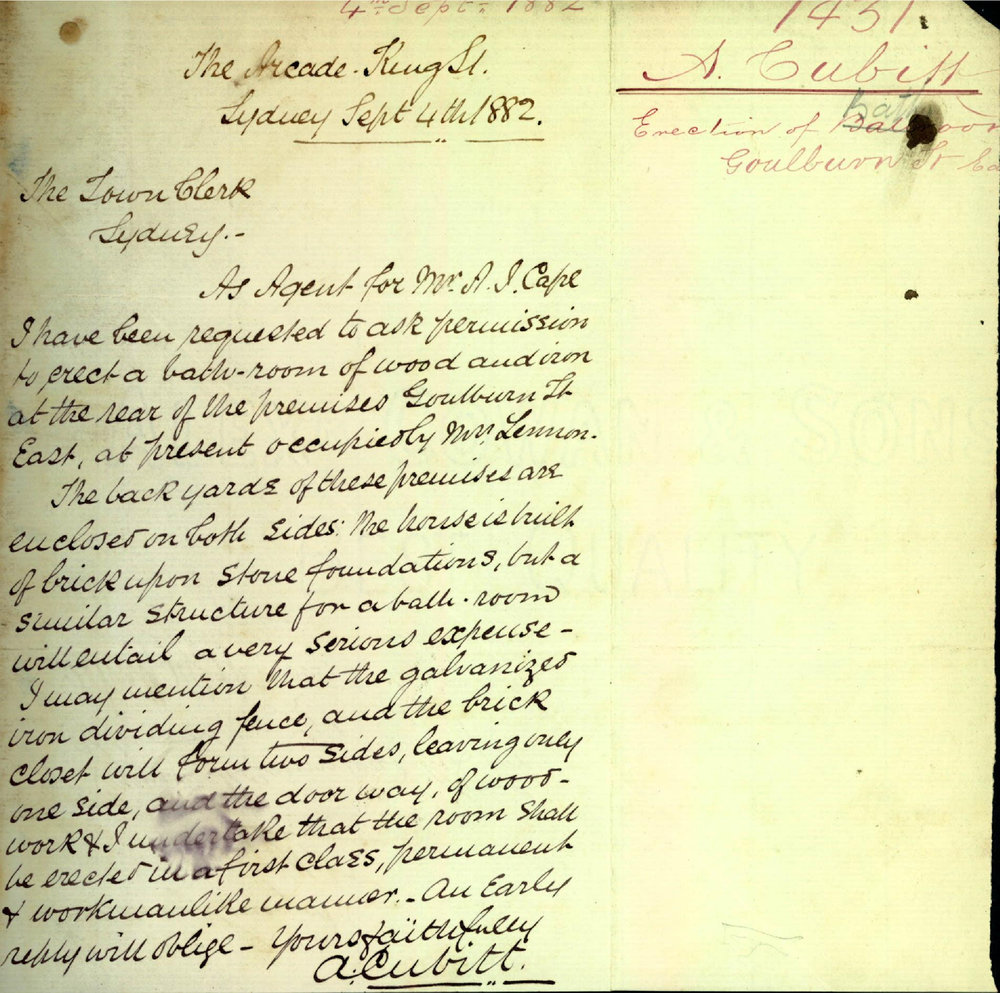 4th Sept. 1882
The Arcade. King St.
Sydney Sept 4th 1882.
The Town Clerk
Sydney.-
As Agent for Mr. A. J. Cape
I have been requested to ask permission
to erect a bath-room of wood and iron
at the rear of the premises Goulburn St
East, at present occupied by Mrs Lennon.
The back yards of these premises are
enclosed on both sides: the house is built
of brick upon stone foundations, but a
similar structure for a bath-room
will entail a very serious expense-
I may mention that the galvanized
iron dividing fence, and the brick
closet will form two sides, leaving only
one side, and the door way, of wood-
work & I undertake that the room shall
be erected in a first class, permanent
& workmanlike manner.- An Early
reply will oblige - Yours faithfully
A. Cubitt.
1451
A. Cubitt
Bath
Erection of
Goulburn St Ea